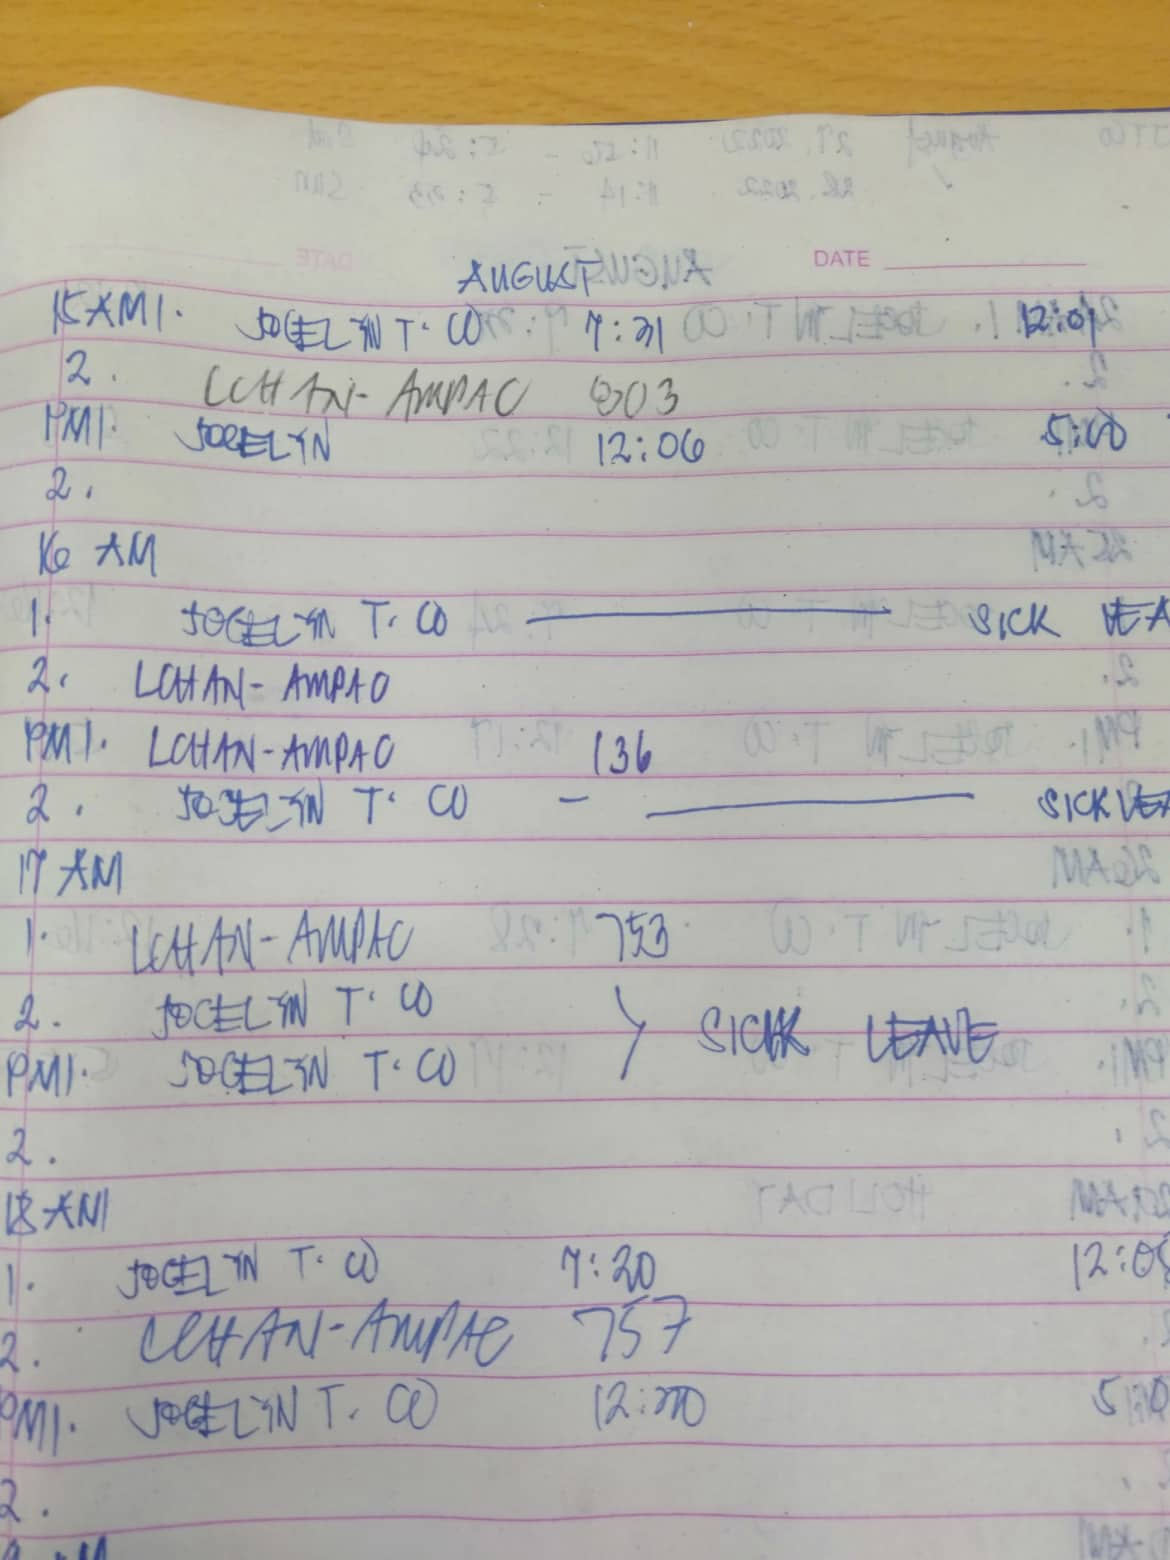 DATE
AUGUST
15 AM 1. JOCELYN T. CO 7:31 12:01
2. LCHAN-AMPAO 803
PM 1. JOCELYN 12:06 5:00
2.
16 AM
1. JOCELYN T. CO SICK LEA
2. LCHAN-AMPAO
PM 1. LCHAN-AMPAO 136
2. JOCELYN T. CO - SICK LEA
17 AM
1. LCHAN-AMPAO 753
2. JOCELYN T. CO
SICK LEAVE
PM 1. JOCELYN T. CO
2.
18 AM
1. JOCELYN T. CO 7:20 12:0
2. LCHAN-AMPAO 757
PM 1. JOCELYN T. CO
2.